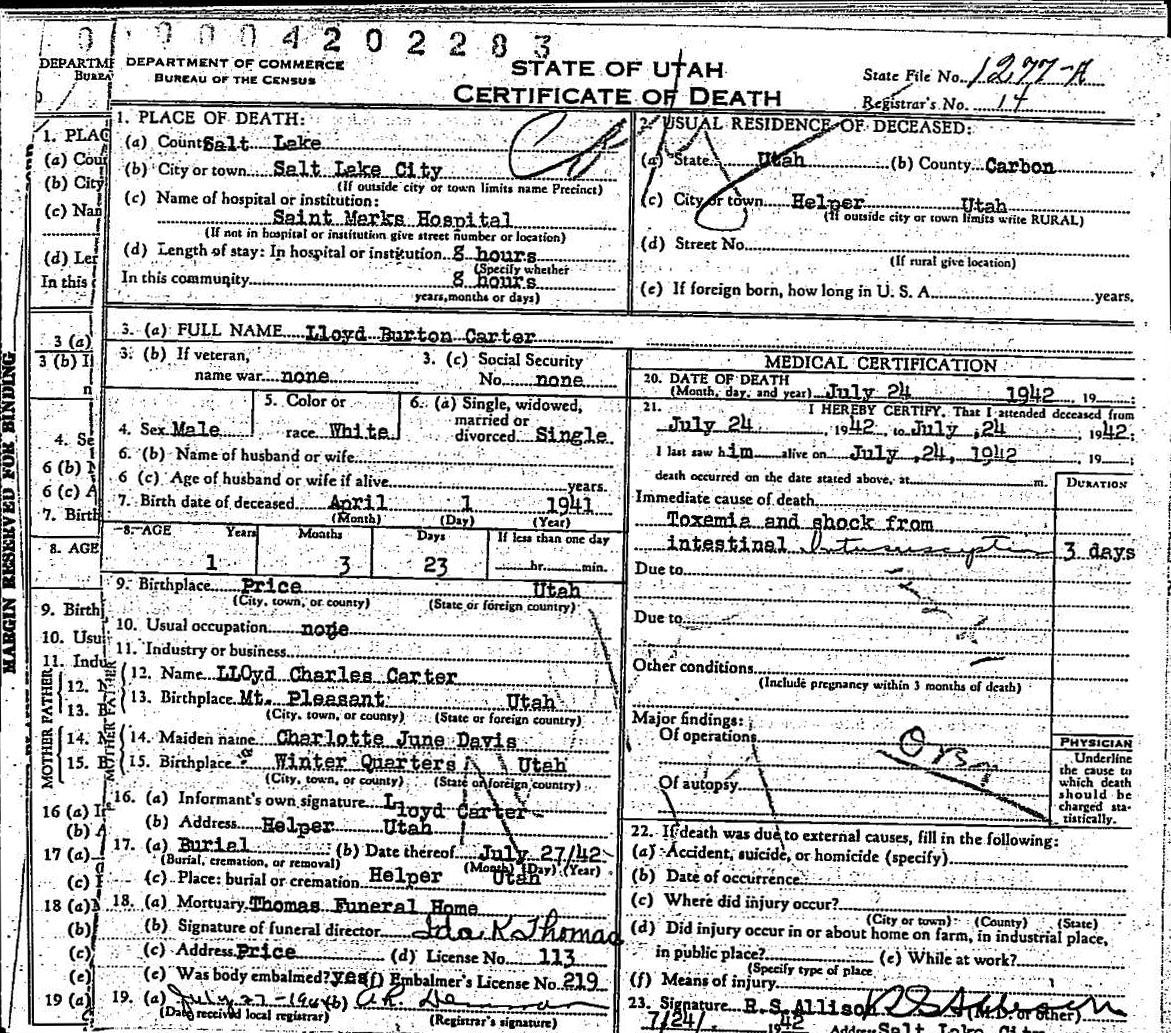 0 0004202283
DEPARTMENT OF COMMERCE
BUREAU OF THE CENSUS
STATE OF UTAH
CERTIFICATE OF DEATH
State File No. 1277-A
Registrar's No. 14
1. PLACE OF DEATH:
(a) County Salt Lake
(b) City or town Salt Lake City
(If outside city or town limits name Precinct)
(c) Name of hospital or institution:
Saint Marks Hospital
(If not in hospital or institution give street number or location)
(d) Length of stay: In hospital or institution 8 hours
(Specify whether
In this community 8 hours
years, months or days)
2. USUAL RESIDENCE OF DECEASED:
(a) State Utah (b) County Carbon
(c) City or town Helper Utah
(If outside city or town limits write RURAL)
(d) Street No.
(If rural give location)
(e) If foreign born, how long in U. S. A. years.
3. (a) FULL NAME Lloyd Burton Carter
3. (b) If veteran, name war none
3. (c) Social Security No. none
4. Sex Male
5. Color or race White
6. (a) Single, widowed, married or divorced Single
6. (b) Name of husband or wife
6 (c) Age of husband or wife if alive years.
7. Birth date of deceased April 1 1941
(Month) (Day) (Year)
8. AGE Years Months Days If less than one day
1 3 23 hr. min.
9. Birthplace Price Utah
(City, town, or county) (State or foreign country)
10. Usual occupation none
11. Industry or business
12. Name LLOyd Charles Carter
13. Birthplace Mt. Pleasant Utah
(City, town, or county) (State or foreign country)
14. Maiden name Charlotte June Davis
15. Birthplace Winter Quarters Utah
(City, town, or county) (State or foreign country)
16. (a) Informant's own signature Lloyd Carter
(b) Address Helper Utah
17. (a) Burial (b) Date thereof July 27/42
(Burial, cremation, or removal) (Month) (Day) (Year)
(c) Place: burial or cremation Helper Utah
18. (a) Mortuary Thomas Funeral Home
(b) Signature of funeral director Ida K Thomas
(c) Address Price (d) License No. 113
(e) Was body embalmed? yes (f) Embalmer's License No. 219
19. (a) July 27-194 (b)
(Date received local registrar) (Registrar's signature)
MEDICAL CERTIFICATION
20. DATE OF DEATH
(Month, day, and year) July 24 1942, 19
21. I HEREBY CERTIFY, That I attended deceased from
July 24, 1942, to July, 24, 1942;
I last saw him alive on July, 24, 1942, 19
death occurred on the date stated above, at m.
DURATION
Immediate cause of death
Toxemia and shock from
intestinal Intussusception 3 days
Due to
Due to
Other conditions
(Include pregnancy within 3 months of death)
Major findings:
Of operations
Of autopsy
PHYSICIAN
Underline
the cause to
which death
should be
charged sta-
tistically.
22. If death was due to external causes, fill in the following:
(a) Accident, suicide, or homicide (specify)
(b) Date of occurrence
(c) Where did injury occur?
(City or town) (County) (State)
(d) Did injury occur in or about home on farm, in industrial place,
in public place? (e) While at work?
(Specify type of place
(f) Means of injury
23. Signature R.S. Allison (M.D. or other)
7/24/ 1942 Address Salt Lake City
MARGIN RESERVED FOR BINDING
DEPARTM
BUREA
1. PLAC
(a) Cou
(b) City
(c) Nan
(d) Ler
In this
3 (a)
3 (b) I
4. Se
6 (b)
6 (c) A
7. Birth
8. AGE
9. Birth
10. Usu
11. Indu
12.
13. B
14. M
15. B
MOTHER FATHER
16 (a) I
(b) A
17 (a)
(c)
18 (a)
(b)
(c)
(e)
19 (a)